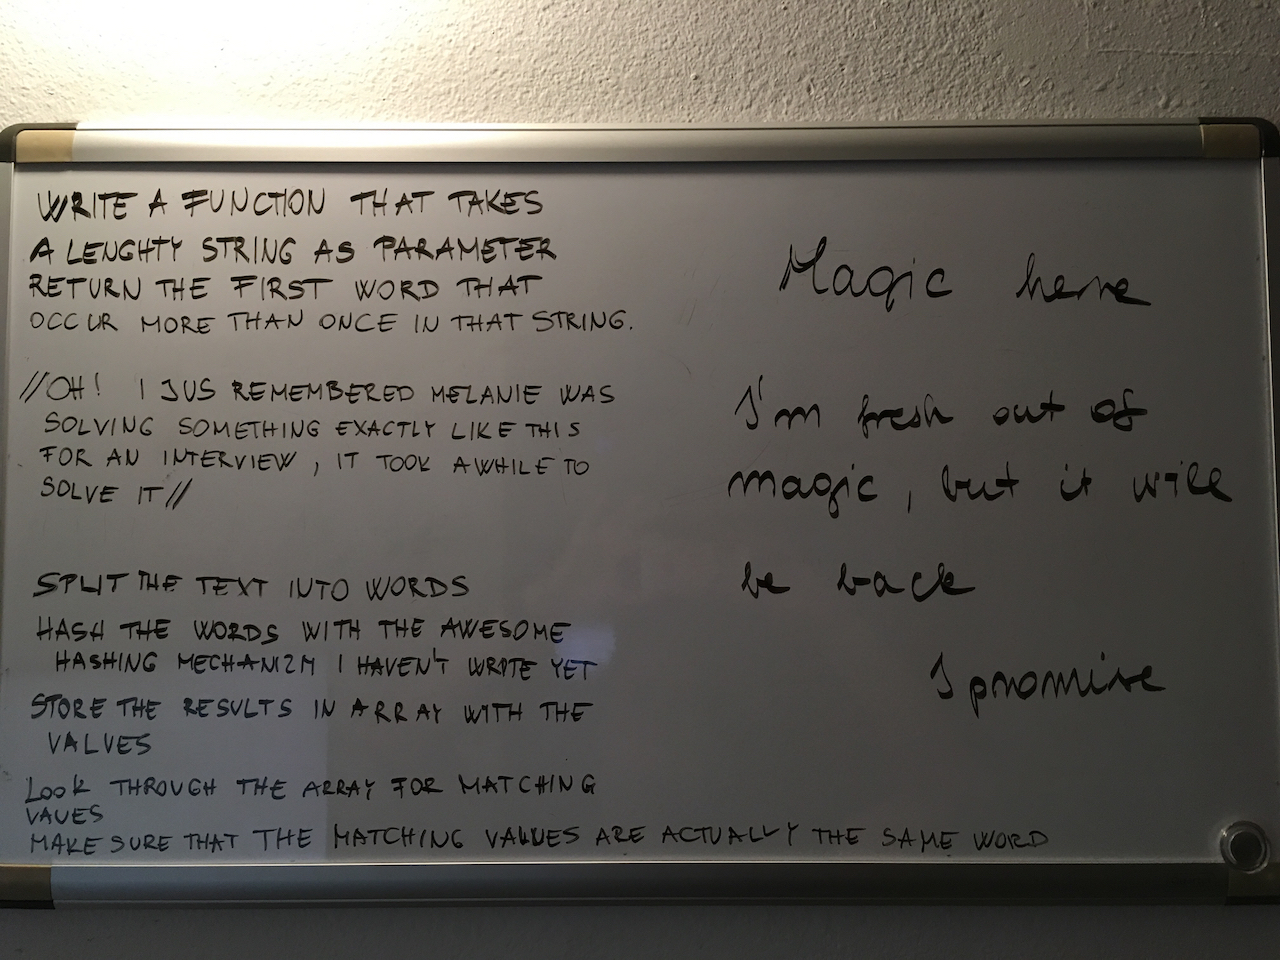 WRITE A FUNCTION THAT TAKES
A LENGHTY STRING AS PARAMETER
RETURN THE FIRST WORD THAT
OCCUR MORE THAN ONCE IN THAT STRING.
//OH! I JUS REMEMBERED MELANIE WAS
SOLVING SOMETHING EXACTLY LIKE THIS
FOR AN INTERVIEW, IT TOOK AWHILE TO
SOLVE IT//
SPLIT THE TEXT INTO WORDS
HASH THE WORDS WITH THE AWESOME
HASHING MECHANIZM I HAVEN'T WROTE YET
STORE THE RESULTS IN ARRAY WITH THE
VALUES
LOOK THROUGH THE ARRAY FOR MATCHING
VAUES
MAKE SURE THAT THE MATCHING VALUES ARE ACTUALLY THE SAME WORD
Magic here
I'm fresh out of
magic, but it will
be back
I promise